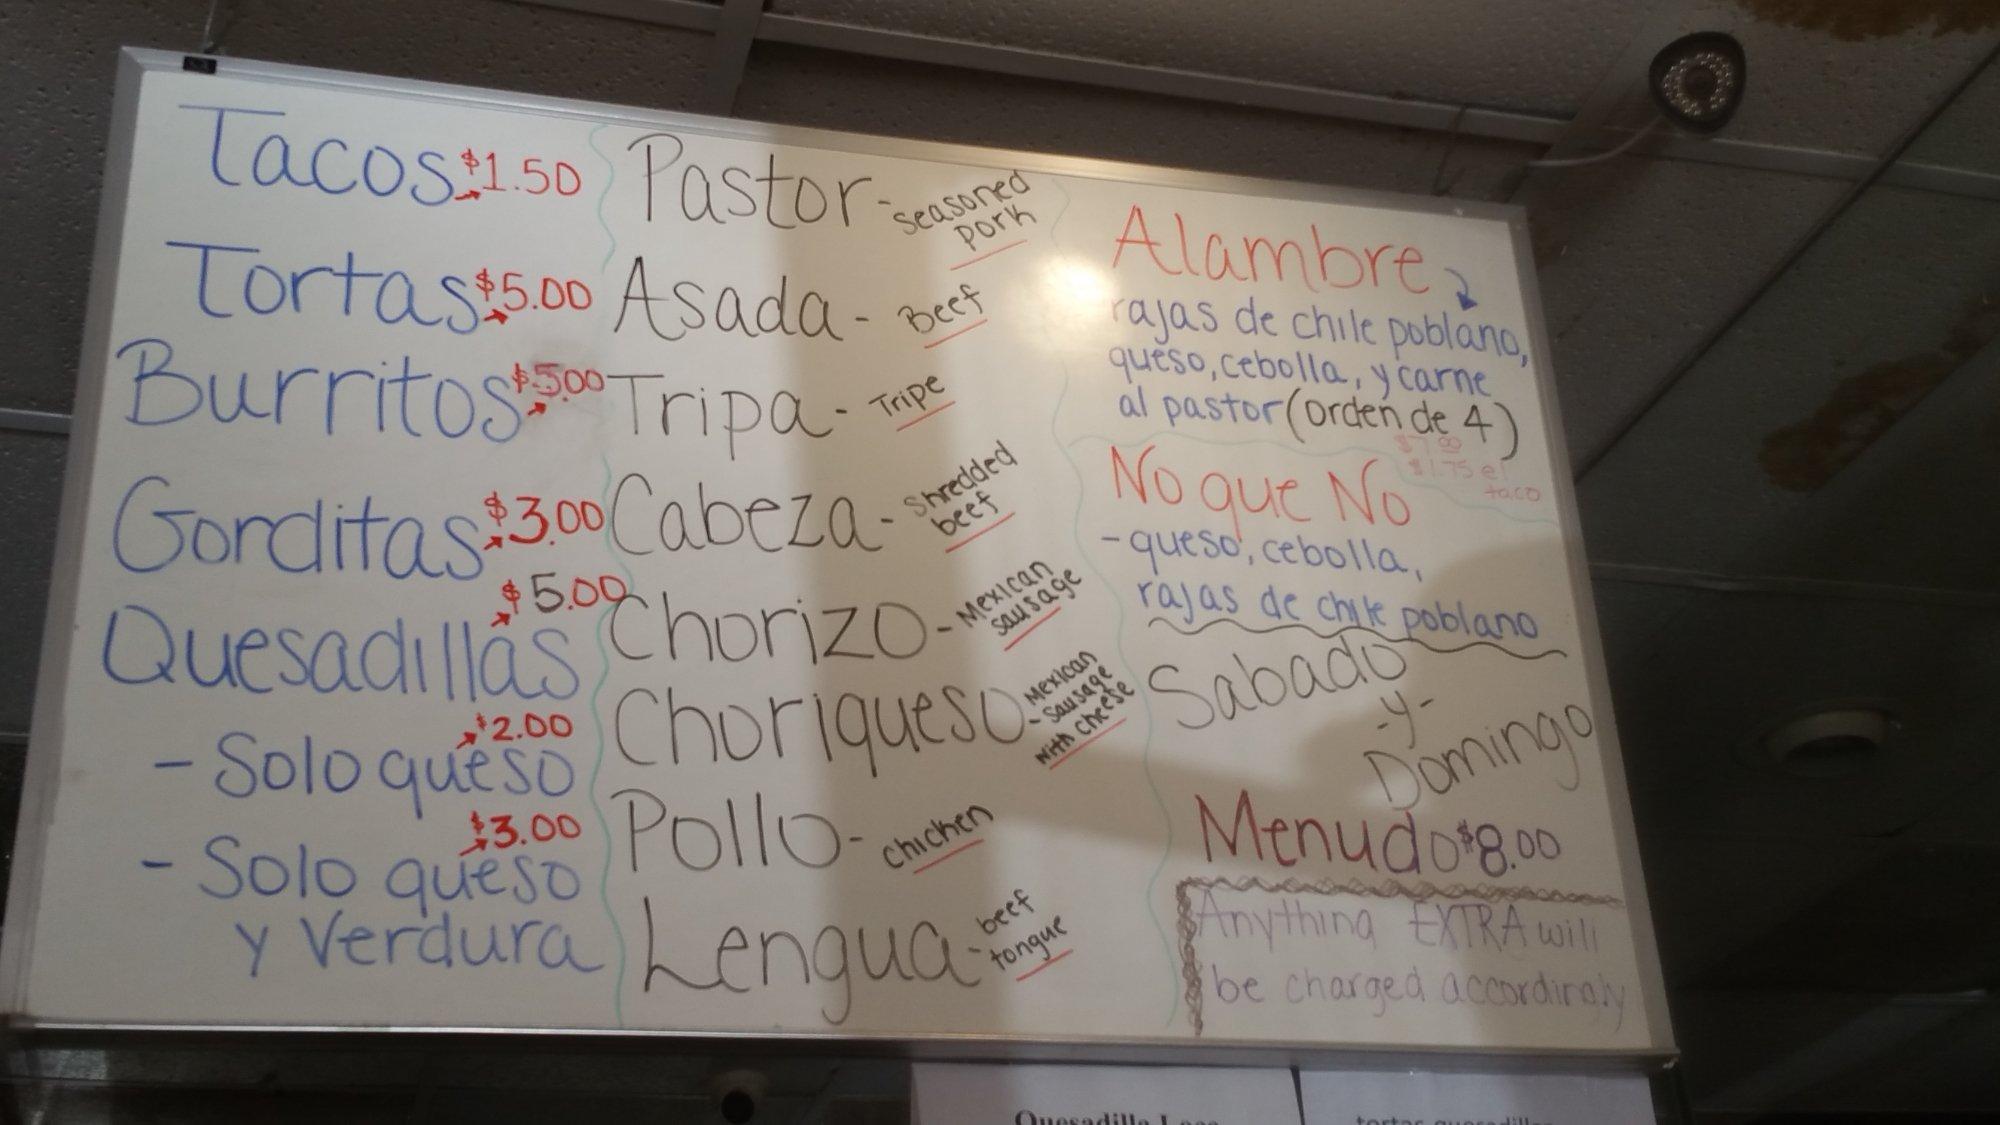 Tacos $1.50
Tortas $5.00
Burritos $5.00
Gorditas $3.00
$5.00
Quesadillas
$2.00
- Solo queso
$3.00
- Solo queso
y Verdura
Pastor - seasoned
pork
Asada - Beef
Tripa - Tripe
Cabeza - Shredded
beef
Chorizo - Mexican
sausage
Choriqueso - Mexican
sausage
with cheese
Pollo - chicken
Lengua - beef
tongue
Alambre
rajas de chile poblano,
queso, cebolla, y carne
al pastor (orden de 4)
$7.00
$1.75 el
taco
No que No
- queso, cebolla,
rajas de chile poblano
Sabado
- y -
Domingo
Menudo $8.00
Anything EXTRA will
be charged accordingly